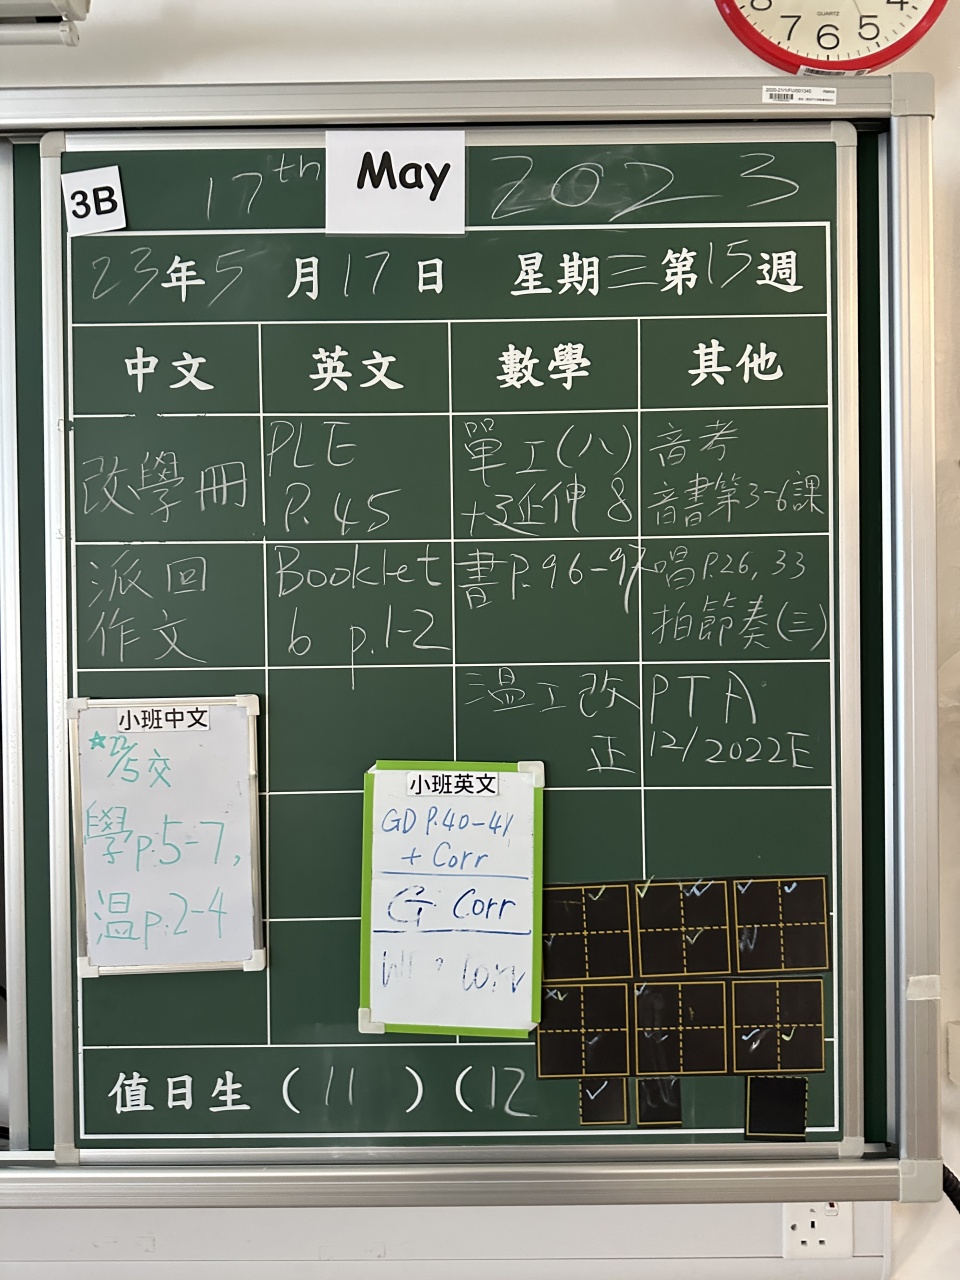 8 7 6 5 4
QUARTZ
3B
17th May 2023
23年5月17日 星期三第15週
中文 英文 數學 其他
改學冊
PLE
P.45
單工(八)
+延伸8
音考
音書第3-6課
派回
作文
Booklet
6 p.1-2
書P.96-97
唱P.26,33
拍節奏(三)
溫工改
正
PTA
12/2022E
小班中文
★22/5交
學p.5-7,
溫p.2-4
小班英文
GD P.40-41
+ Corr
Corr
值日生(11)(12